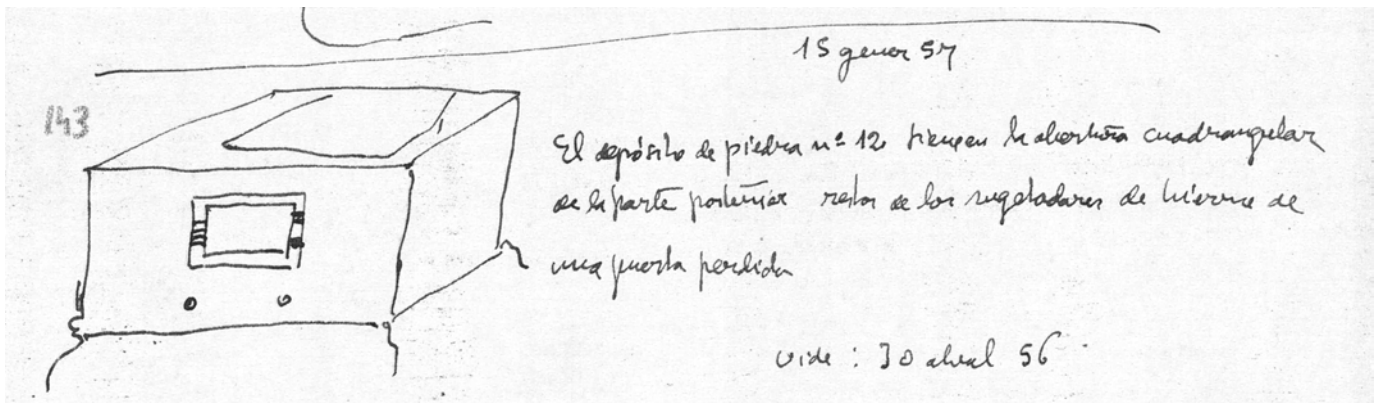 15 gener 57
143
El depósito de piedra nº 12 tiene en la abertura cuadrangular
de la parte posterior restos de los sugetadores de hierro de
una puerta perdida
vide: 30 abril 56